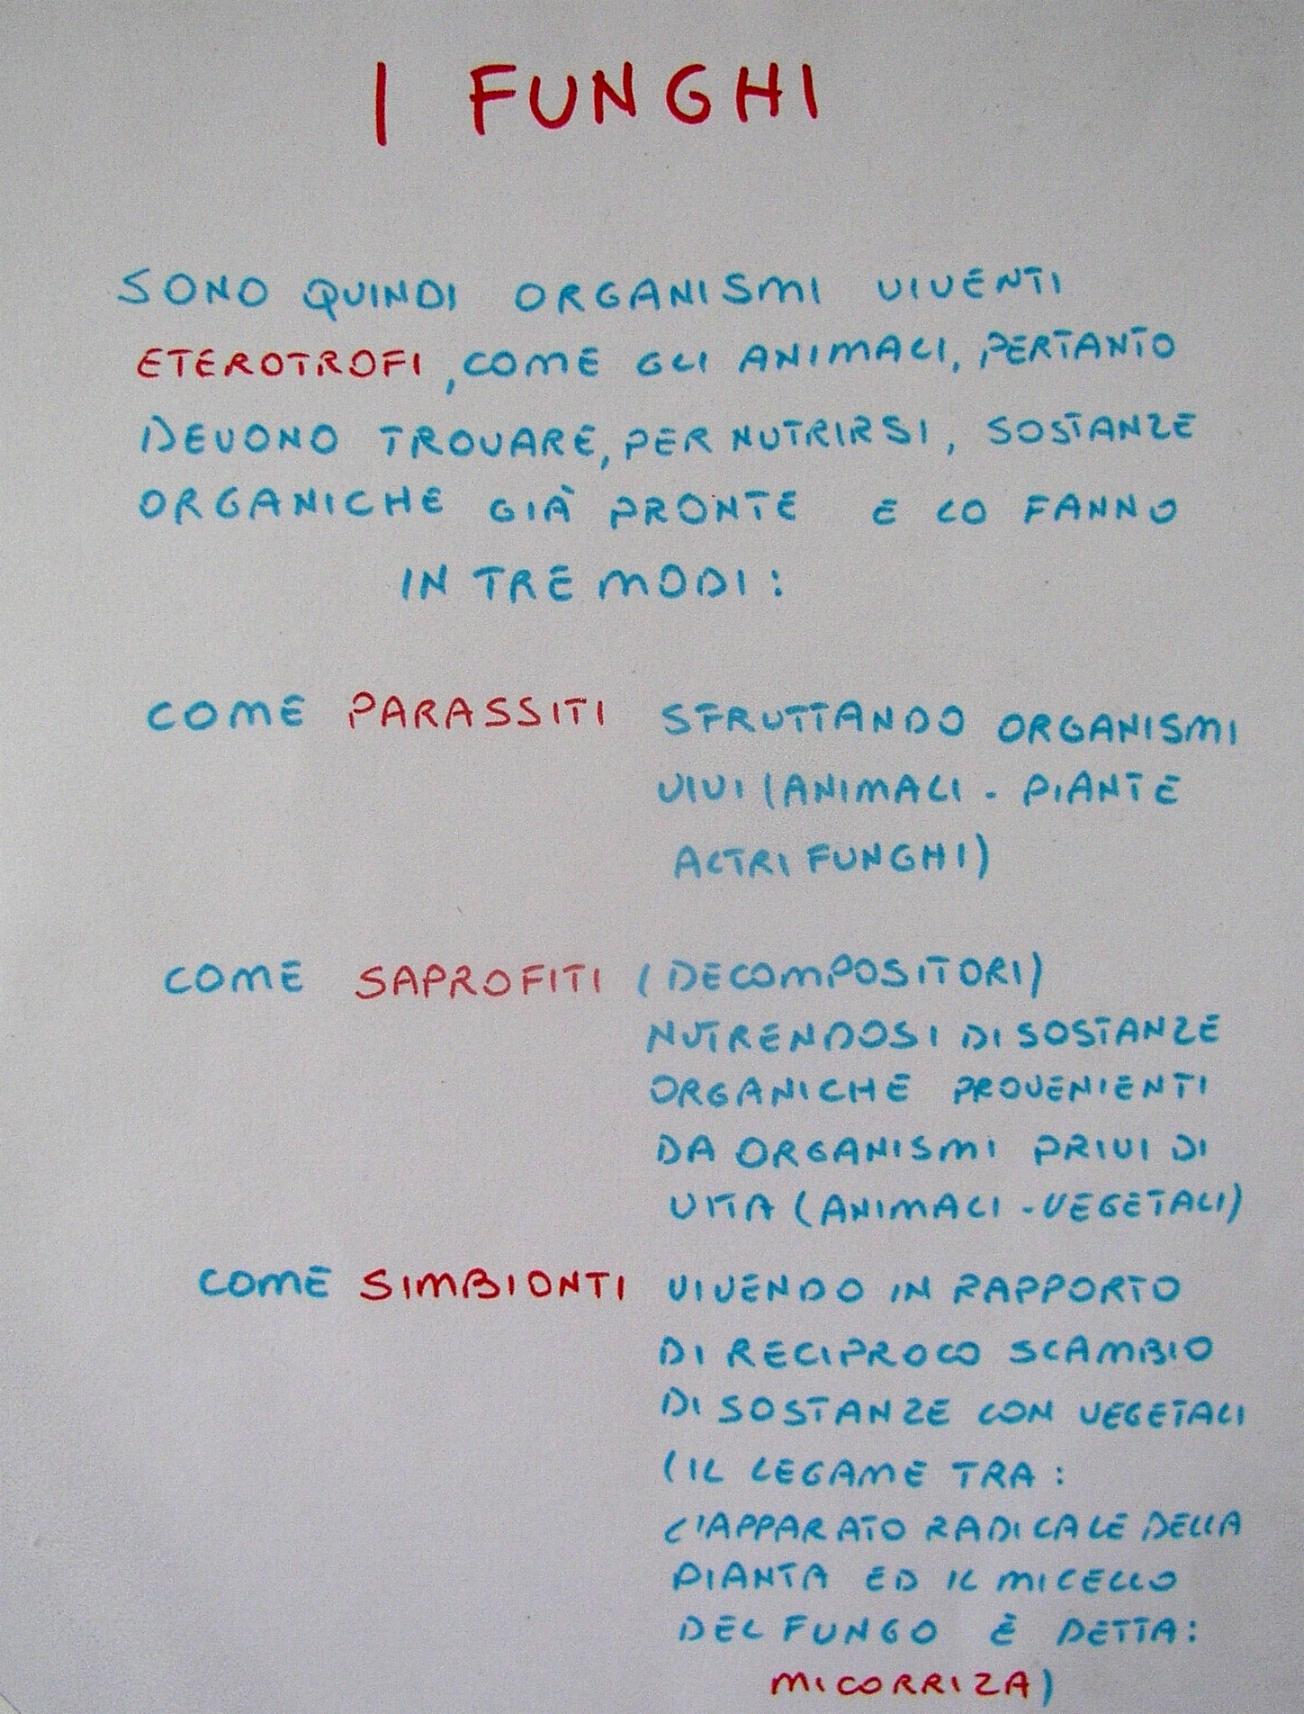 I FUNGHI
SONO QUINDI ORGANISMI VIVENTI
ETEROTROFI, COME GLI ANIMALI, PERTANTO
DEVONO TROVARE, PER NUTRIRSI, SOSTANZE
ORGANICHE GIÀ PRONTE E LO FANNO
IN TRE MODI:
COME PARASSITI SFRUTTANDO ORGANISMI
VIVI (ANIMALI - PIANTE
ALTRI FUNGHI)
COME SAPROFITI (DECOMPOSITORI)
NUTRENDOSI DI SOSTANZE
ORGANICHE PROVENIENTI
DA ORGANISMI PRIVI DI
VITA (ANIMALI - VEGETALI)
COME SIMBIONTI VIVENDO IN RAPPORTO
DI RECIPROCO SCAMBIO
DI SOSTANZE CON VEGETALI
(IL LEGAME TRA:
L'APPARATO RADICALE DELLA
PIANTA ED IL MICELLO
DEL FUNGO È DETTA:
MICORRIZA)